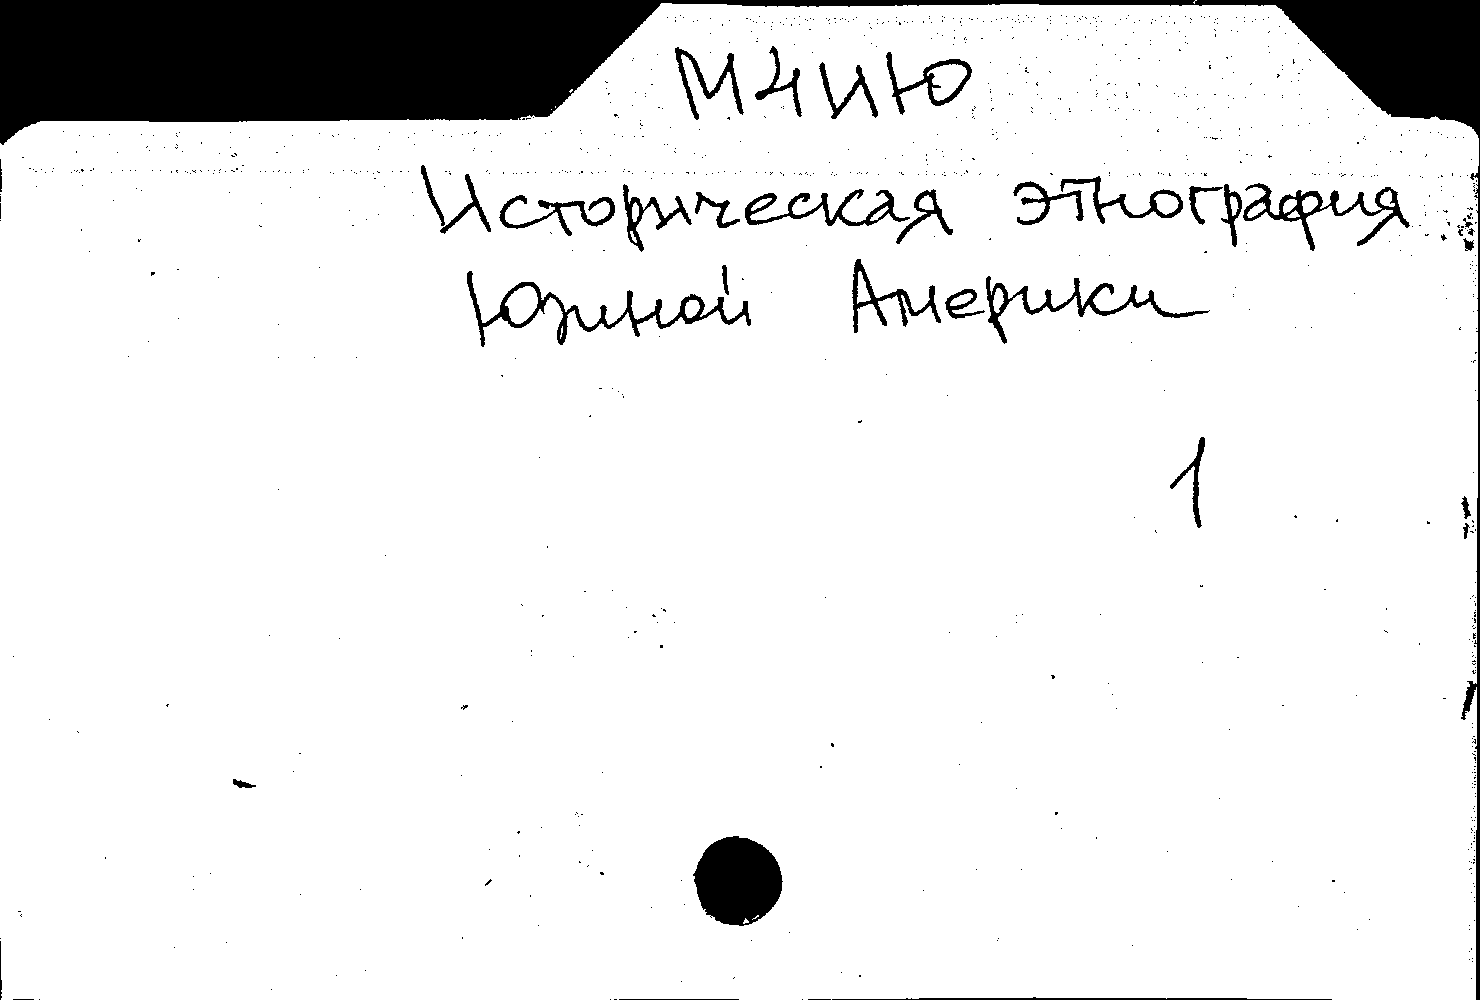 М4ИЮ
Историческая этнография
Южной Америки
1